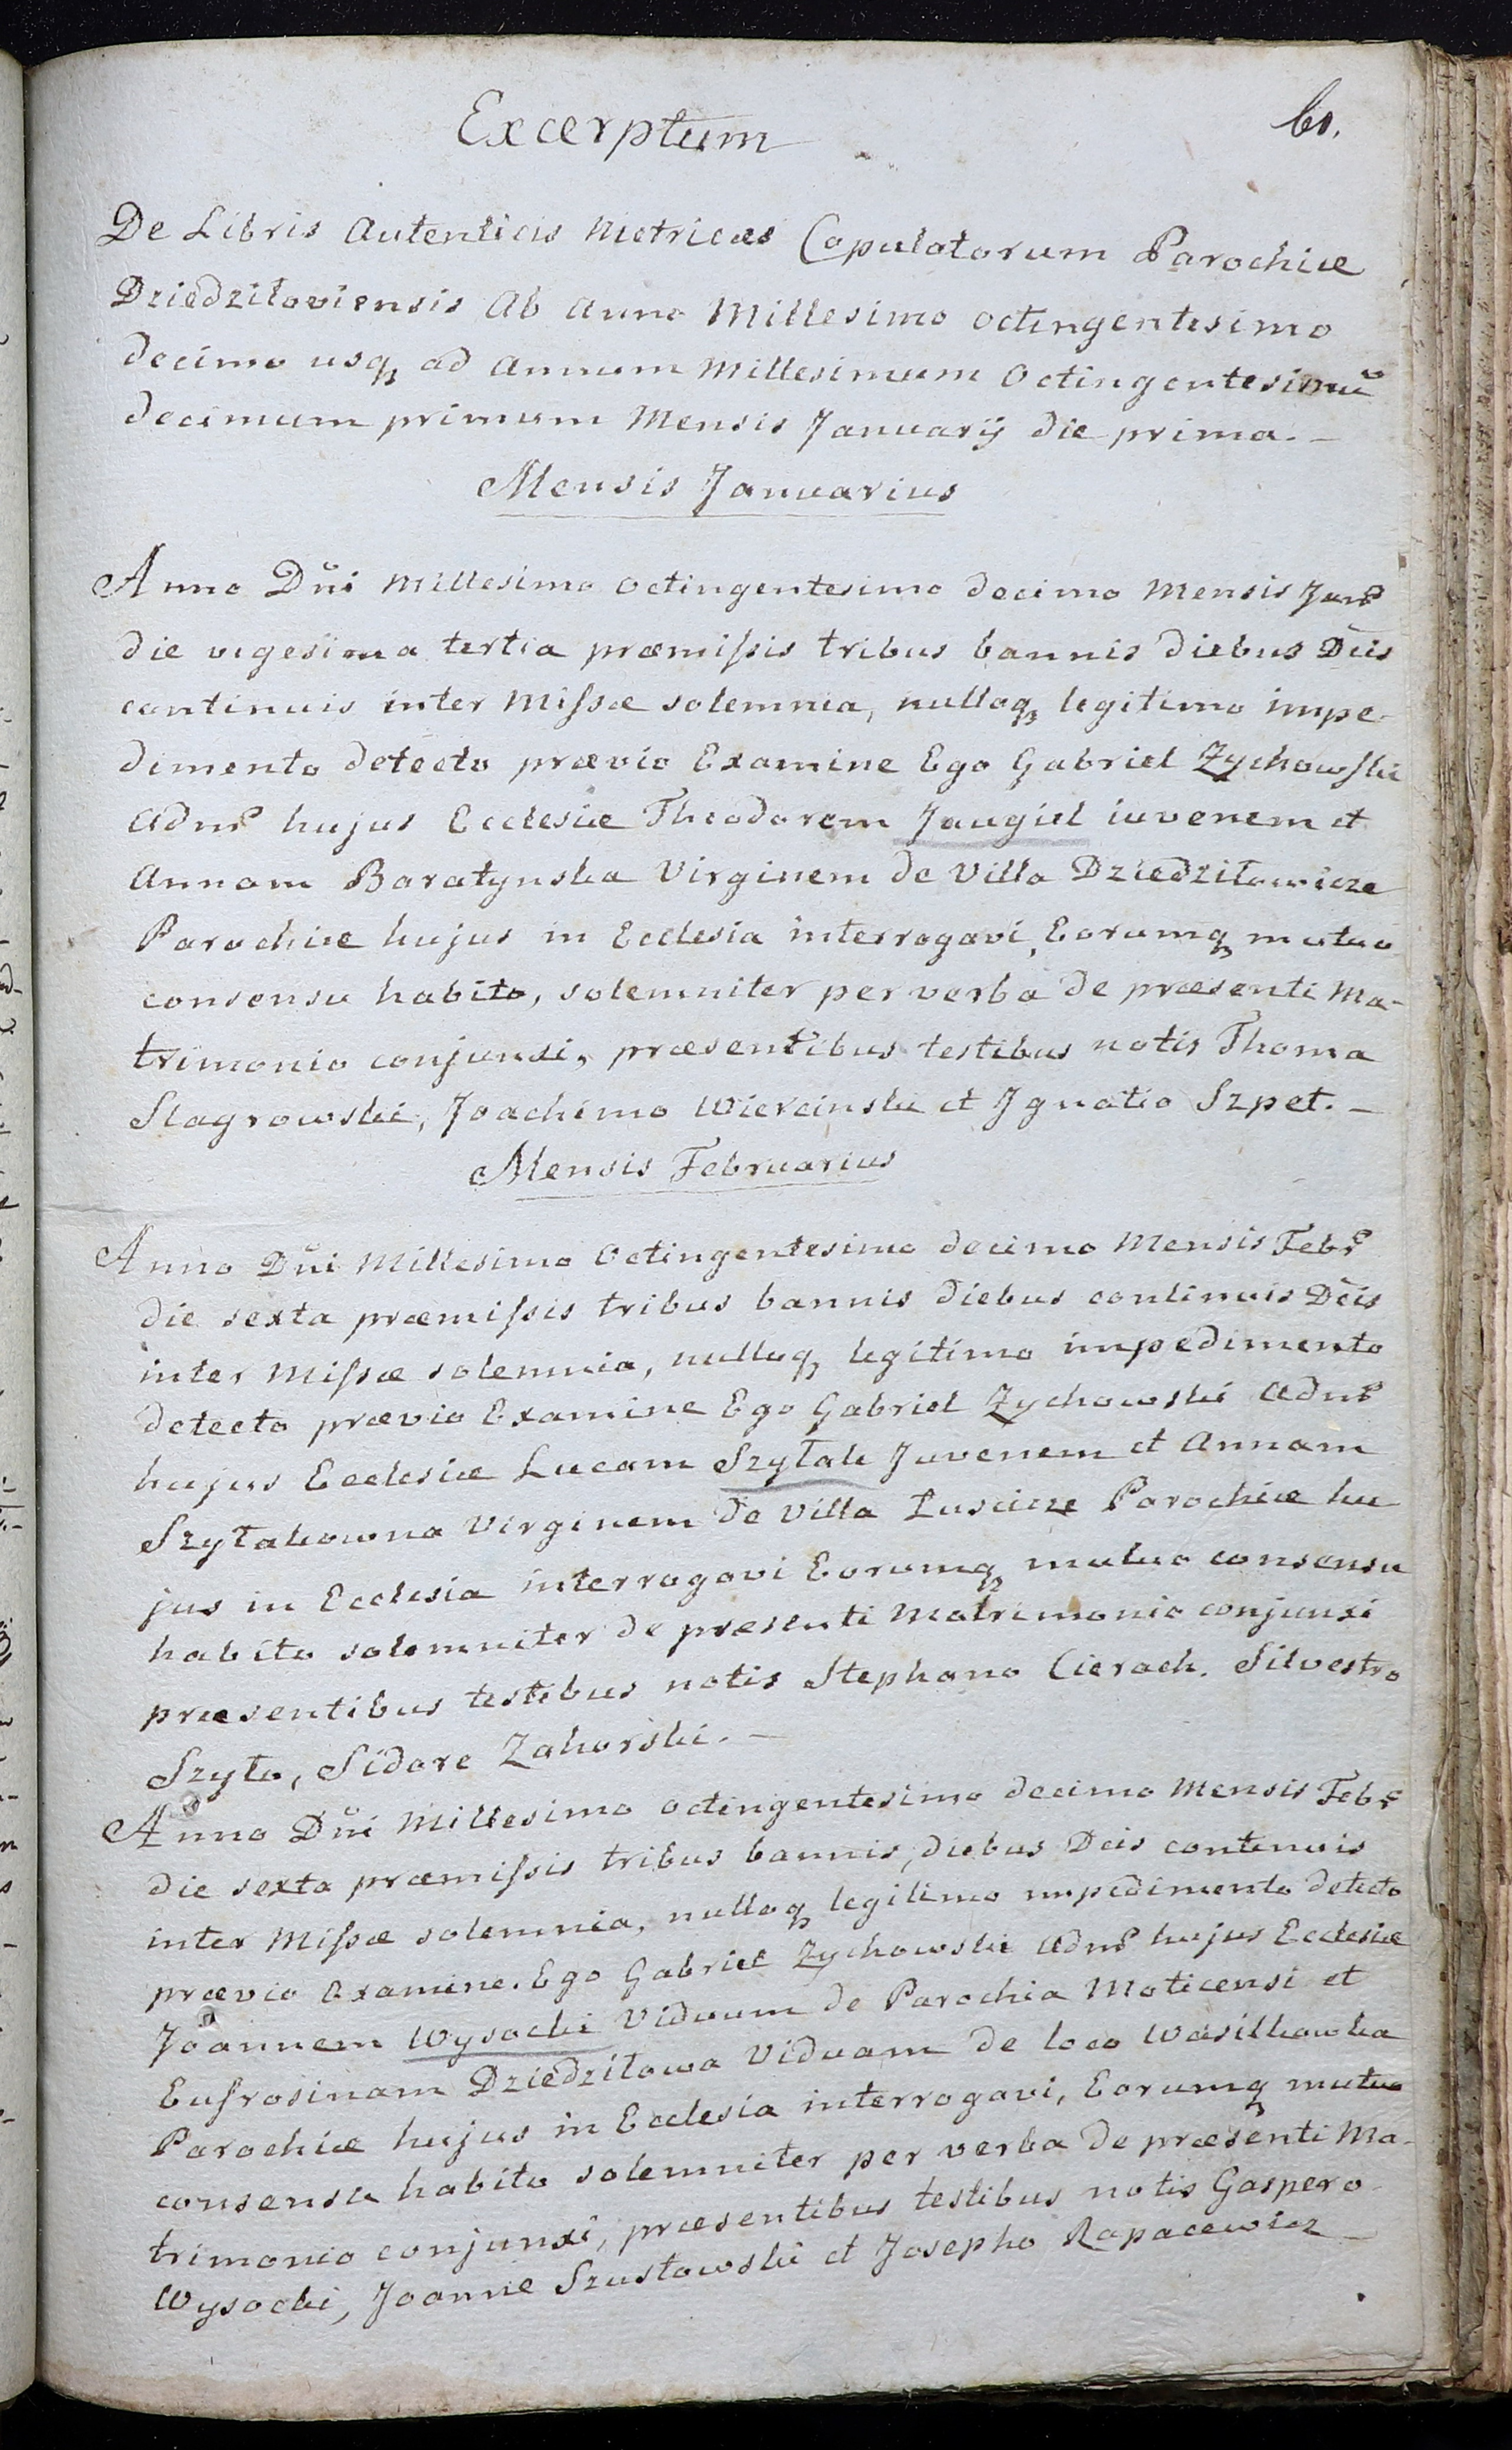 Excerptum
60.
De Libris Autenticis Metrices Copulatorum Parochiæ
Dziedziłoviensis Ab Anno Millesimo octingentesimo
decimo usq ad Annum Millesimum Octingentesimũ
decimum primum Mensis Januarij die prima. –
Mensis Januarius
Anno Dñi Millesimo octingentesimo decimo Mensis Janr
die vigesima tertia præmissis tribus bannis diebus Dcis
continuis inter Missæ solemnia, nulloq legitimo impe-
dimento detecto prævio Examine Ego Gabriel Zychowski
Admr hujus Ecclesiæ Theodorem Jaugiel iuvenem et
Annam Baratynska Virginem de Villa Dziedziłowicze
Parochiæ hujus in Ecclesia interrogavi, Eorumq mutuo
consensu habito, solemniter per verba de præsenti Ma-
trimonio conjunxi, præsentibus testibus notis Thoma
Stagrowski, Joachimo Wiercinski et Jgnatio Szpet. –
Mensis Februarius
Anno Dñi Millesimo Octingentesimo decimo Mensis Febr
die sexta præmissis tribus bannis diebus continuis Dcis
inter Missæ solemnia, nulloq legitimo impedimento
detecto prævio Examine Ego Gabriel Zychowski Admr
hujus Ecclesiæ Lucam Szyłak Juvenem et Annam
Szyłakowna Virginem de Villa Łuscicze Parochiæ hu
jus in Ecclesia interrogavi Eorumq mutuo consensu
habito solemniter de præsenti Matrimonio conjunxi
præsentibus testibus notis Stephano Cierach, Silvestro
Szyło, Sidore Zahorski. –
Anno Dñi Millesimo octingentesimo decimo Mensis Febr
die sexta præmissis tribus bannis, diebus Dcis continuis
inter Missæ solemnia, nulloq legitimo impedimento detecto
prævio Examine. Ego Gabriel Zychowski Admr hujus Ecclesiæ
Joannem Wysocki Viduum de Parochia Moticensi et
Eufrosinam Dziedziłowa Viduam de loco Wasilkowka
Parochiæ hujus in Ecclesia interrogavi, Eorumq mutuo
consensu habito solemniter per verba de præsenti Ma-
trimonio conjunxi, præsentibus testibus notis Gaspero
Wysocki, Joanne Szustowski et Josepho Rapacewicz –